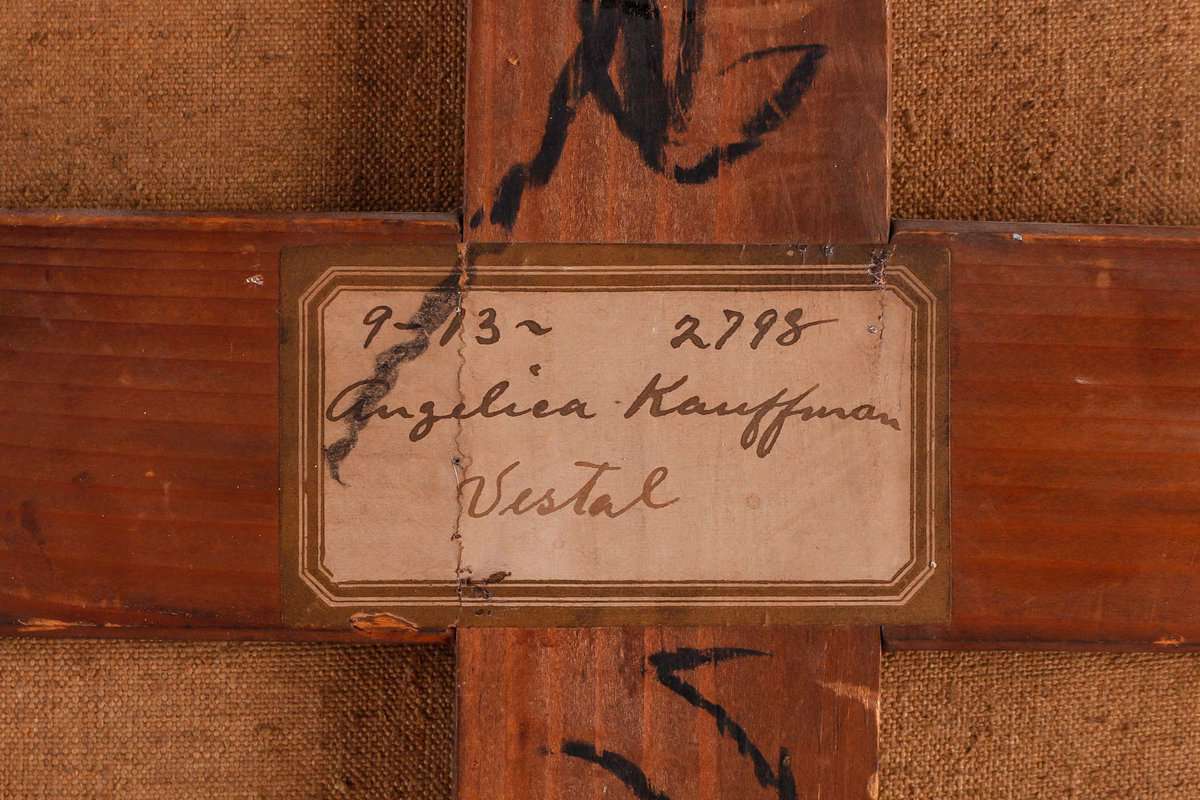 9-13~ 2798
Angelica Kauffman
Vestal